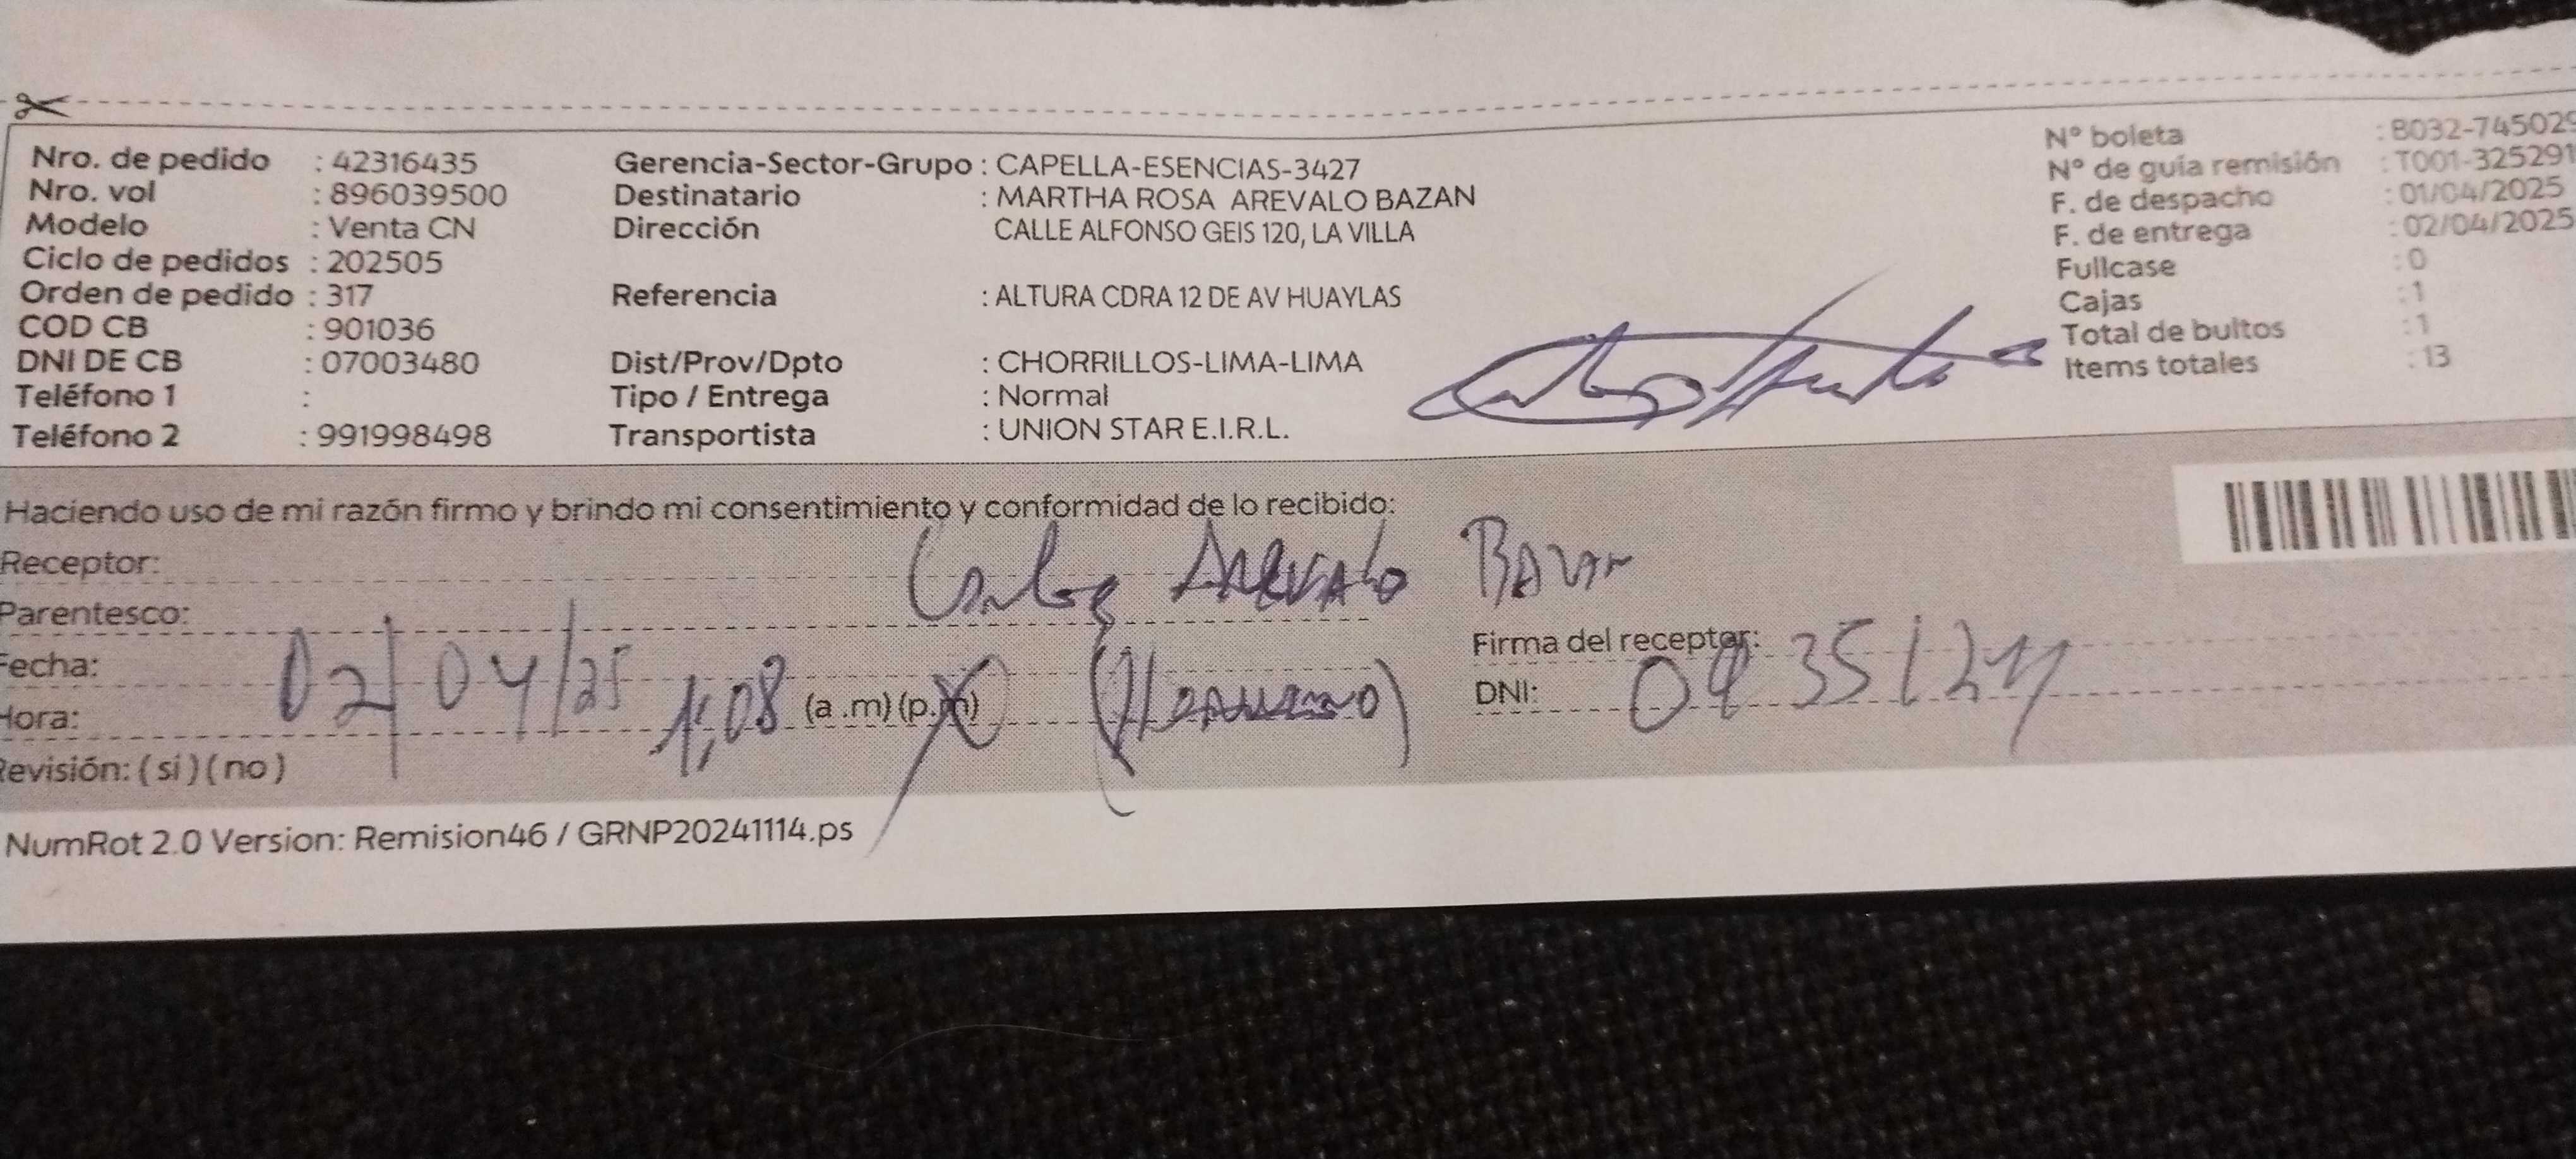 Nro. de pedido : 42316435
Nro. vol : 896039500
Modelo : Venta CN
Ciclo de pedidos : 202505
Orden de pedido : 317
COD CB : 901036
DNI DE CB : 07003480
Teléfono 1 :
Teléfono 2 : 991998498
Gerencia-Sector-Grupo : CAPELLA-ESENCIAS-3427
Destinatario : MARTHA ROSA AREVALO BAZAN
Dirección CALLE ALFONSO GEIS 120, LA VILLA
Referencia : ALTURA CDRA 12 DE AV HUAYLAS
Dist/Prov/Dpto : CHORRILLOS-LIMA-LIMA
Tipo / Entrega : Normal
Transportista : UNION STAR E.I.R.L.
N° boleta : B032-745029
N° de guía remisión : T001-325291
F. de despacho : 01/04/2025
F. de entrega : 02/04/2025
Fullcase : 0
Cajas : 1
Total de bultos : 1
Items totales : 13
Haciendo uso de mi razón firmo y brindo mi consentimiento y conformidad de lo recibido:
Receptor: Carlos AREVALO BAZAN
Parentesco:
Fecha: 02/04/25
Hora: 1:08 (a .m) (p.m) (Hermano)
Revisión: ( si ) ( no )
Firma del receptor:
DNI:
NumRot 2.0 Version: Remision46 / GRNP20241114.ps